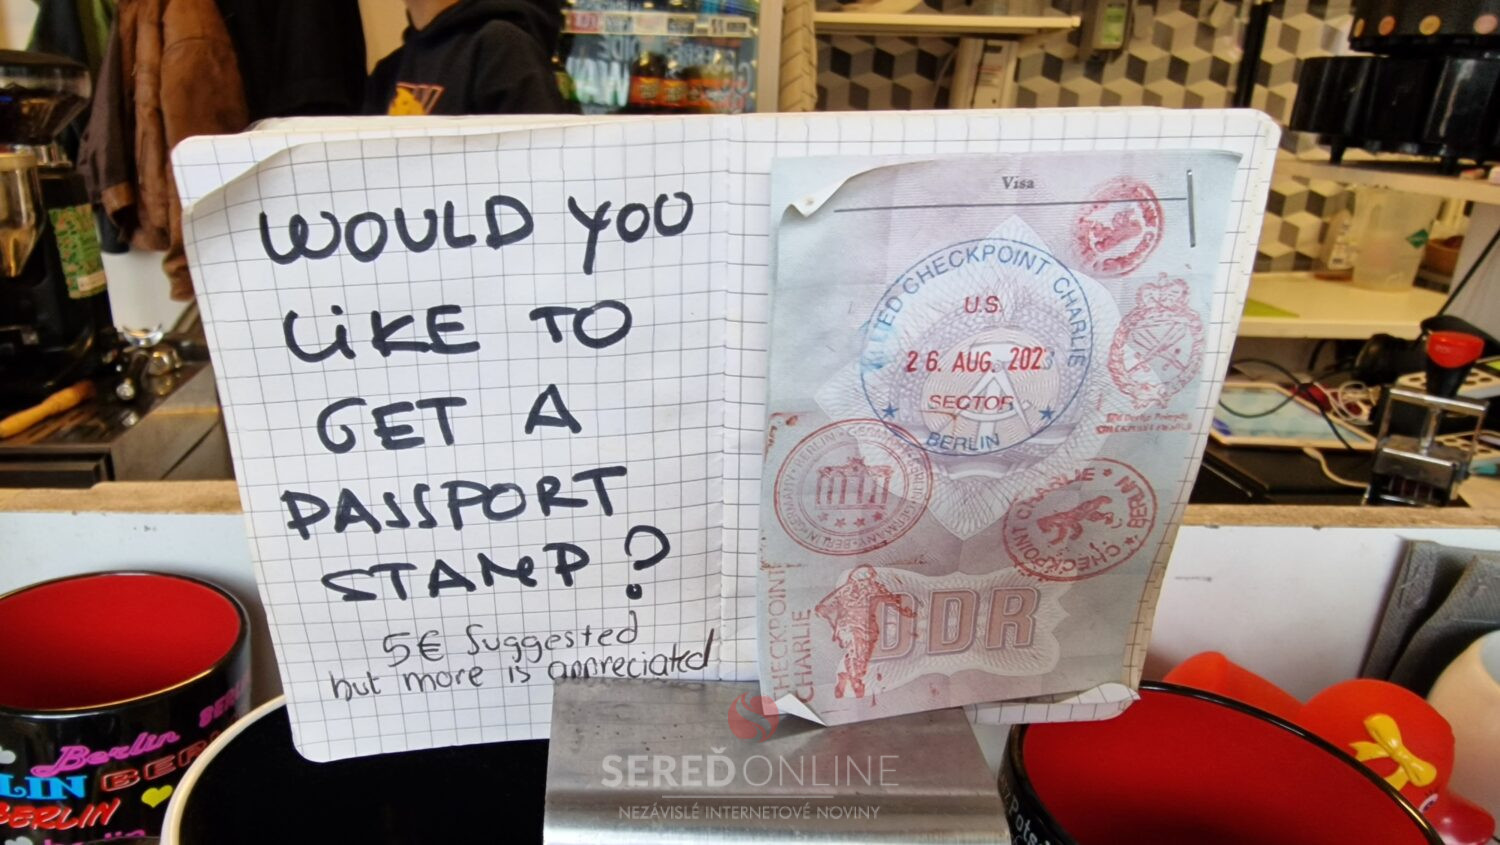 WOULD YOU
LIKE TO
GET A
PASSPORT
STAMP?
5€ Suggested
but more is appreciated
Visa
CHECKPOINT CHARLIE
U.S.
26. AUG. 202
SECTOR
BERLIN
BERLIN • GERMANY
BERLIN • GERMANY
CHECKPOINT CHARLIE
BERLIN
CHECKPOINT
CHARLIE
DDR
SEREĎ ONLINE
NEZÁVISLÉ INTERNETOVÉ NOVINY
Berlin
BERLIN